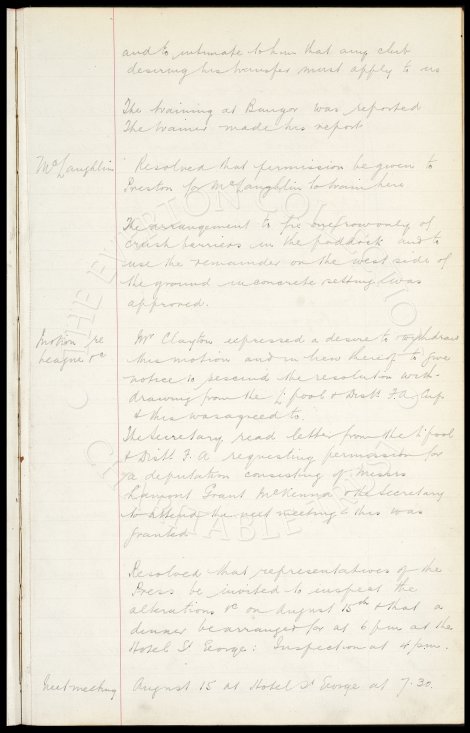 and to intimate to him that any club
desiring his transfer must apply to us
The training at Bangor was reported
The trainer made his report
McLaughlin Resolved that permission be given to
Preston for McLaughlin to train here
The arrangement to fix one row only of
crush barriers in the paddock and to
use the remainder on the west side of
the ground in concrete setting was
approved.
Motion re Mr Clayton expressed a desire to withdraw
League &c this motion and in lieu thereof to give
notice to rescind the resolution with-
drawing from the L'pool & Distt F.A Cup
& this was agreed to.
The Secretary read letter from the L'pool
& Distt F. A requesting permission for
a deputation consisting of Messrs
Lamont Grant McKenna & the Secretary
to attend the next meeting & this was
granted
Resolved that representatives of the
Press be invited to inspect the
alterations &c on August 15th & that a
dinner be arranged for at 6 p.m at the
Hotel St George: Inspection at 4 p.m.
Next meeting August 15 at Hotel St George at 7.30.
THE EVERTON COLLECTION CHARITABLE TRUST